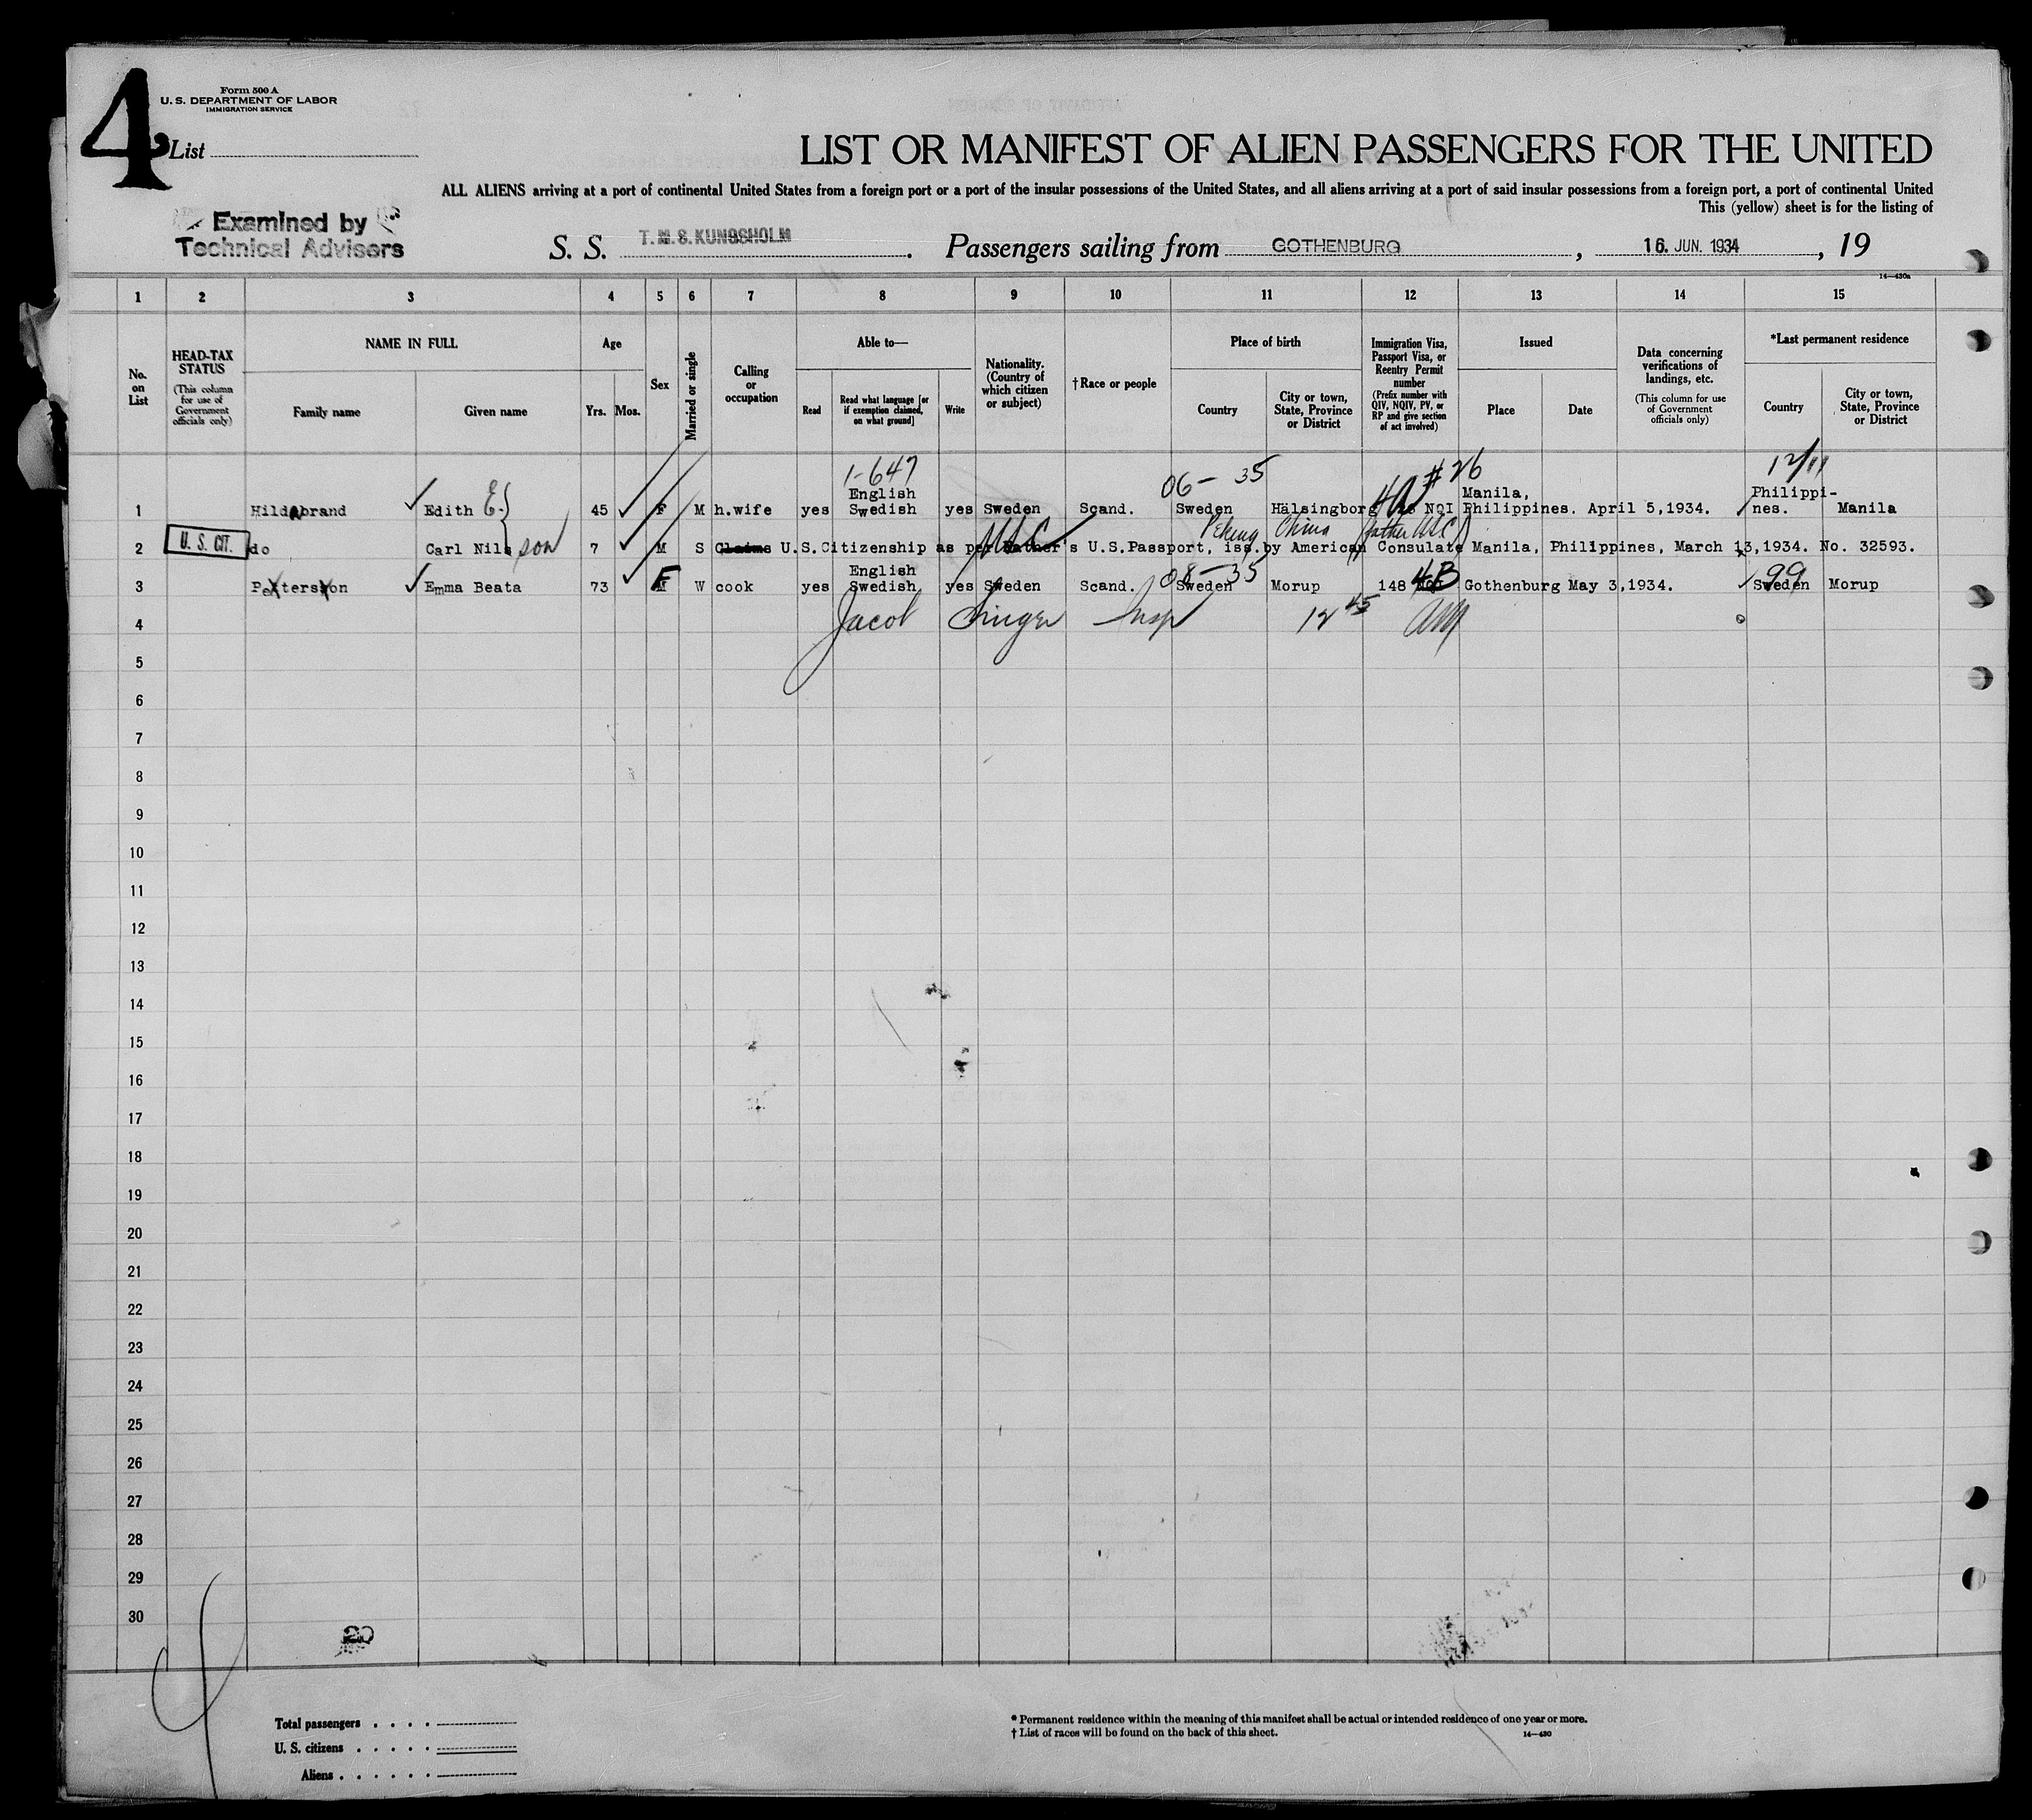 4
Form 500 A
U. S. DEPARTMENT OF LABOR
IMMIGRATION SERVICE
List
LIST OR MANIFEST OF ALIEN PASSENGERS FOR THE UNITED
ALL ALIENS arriving at a port of continental United States from a foreign port or a port of the insular possessions of the United States, and all aliens arriving at a port of said insular possessions from a foreign port, a port of continental United
This (yellow) sheet is for the listing of
Examined by
Technical Advisers
S. S. T. M. S. KUNGSHOLM . Passengers sailing from GOTHENBURG , 16. JUN. 1934 , 19
14—430a
1 2 3 4 5 6 7 8 9 10 11 12 13 14 15
No. on List
HEAD-TAX STATUS
(This column for use of Government officials only)
NAME IN FULL
Family name Given name
Age
Yrs. Mos.
Sex
Married or single
Calling or occupation
Able to—
Read
Read what language [or if exemption claimed, on what ground]
Write
Nationality. (Country of which citizen or subject)
† Race or people
Place of birth
Country
City or town, State, Province or District
Immigration Visa, Passport Visa, or Reentry Permit number
(Prefix number with QIV, NQIV, PV, or RP and give section of act involved)
Issued
Place Date
Data concerning verifications of landings, etc.
(This column for use of Government officials only)
*Last permanent residence
Country
City or town, State, Province or District
1-647 06- 35 #26 12/11
English Manila, Philippi-
1 Hildebrand Edith E. 45 F M h.wife yes Swedish yes Sweden Scand. Sweden Hälsingborg NQI Philippines. April 5,1934. nes. Manila
USC Peking China father USC
2 U. S. CIT. do Carl Nils son 7 M S Claims U.S.Citizenship as per Father's U.S.Passport, iss.by American Consulate Manila, Philippines, March 13,1934. No. 32593.
English 08-35 4B 99
3 Petterson Emma Beata 73 F W cook yes Swedish yes Sweden Scand. Sweden Morup 148 Gothenburg May 3,1934. Sweden Morup
4 Jacob Singer Insp 12 45
5
6
7
8
9
10
11
12
13
14
15
16
17
18
19
20
21
22
23
24
25
26
27
28
29
30
20
Total passengers
U. S. citizens
Aliens
* Permanent residence within the meaning of this manifest shall be actual or intended residence of one year or more.
† List of races will be found on the back of this sheet.
14—430